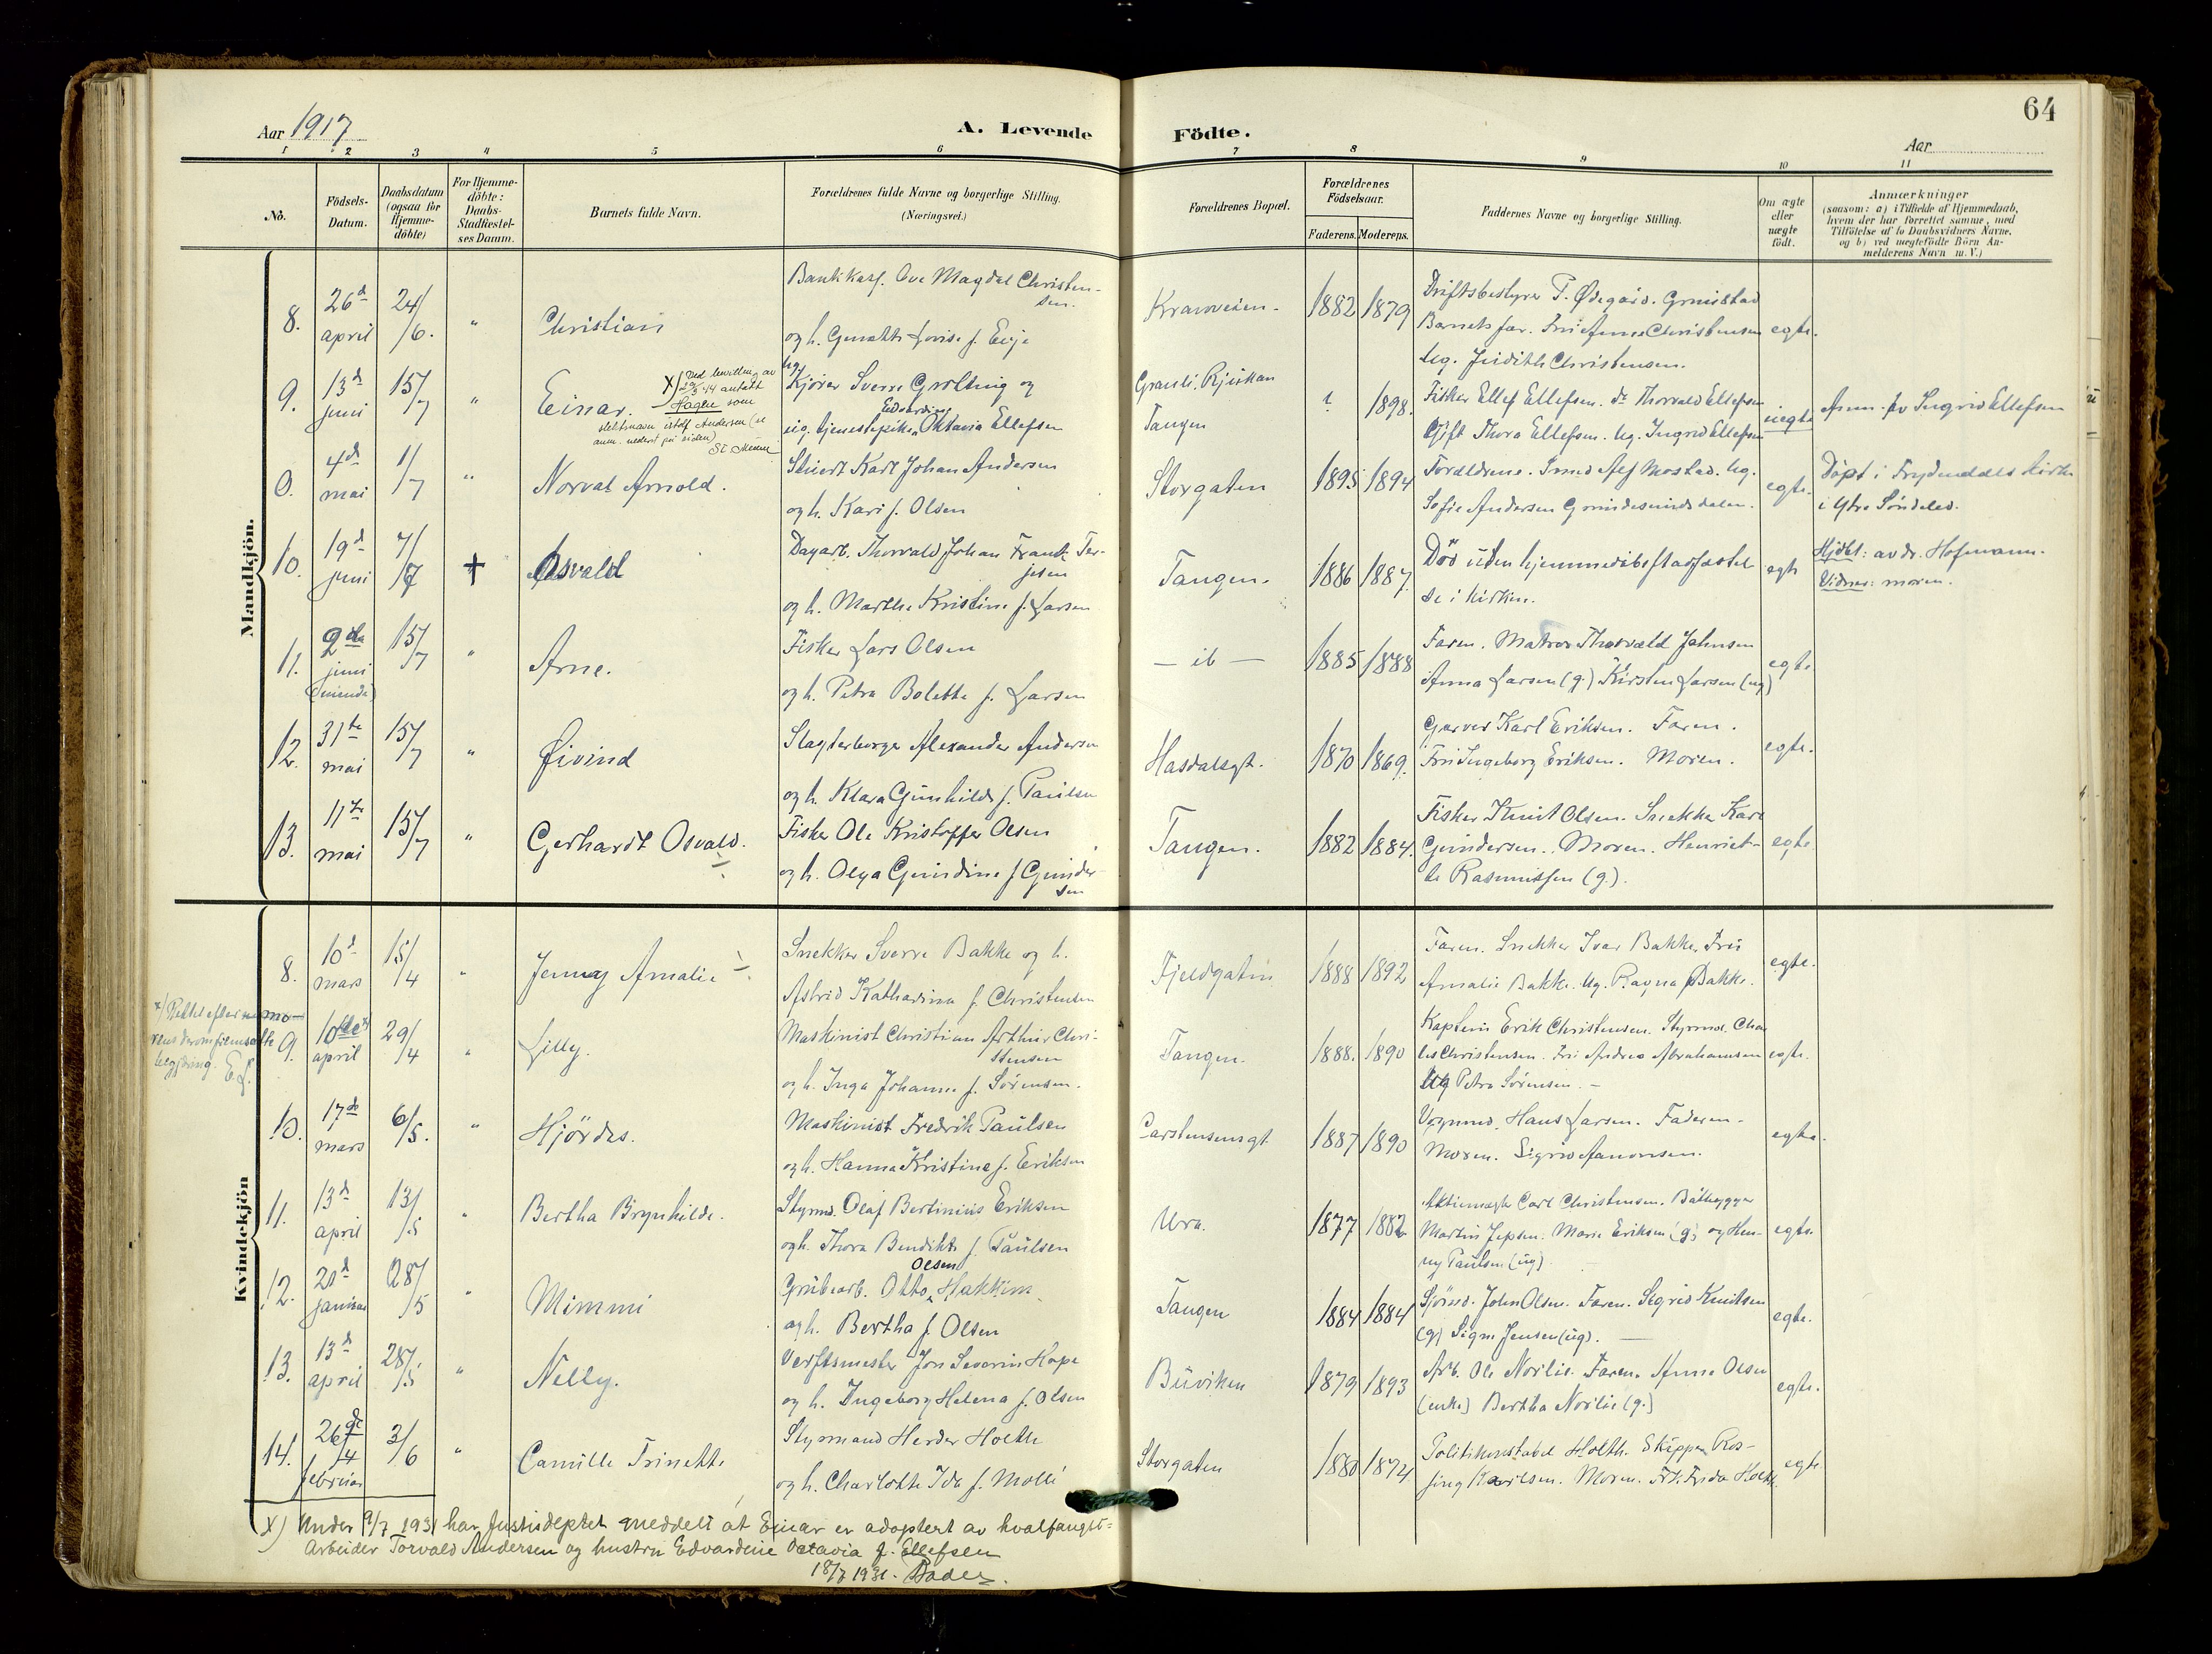 64
Aar 1917
A. Levende Födte.
Aar
1 2 3 4 5 6 7 8 9 10 11
No.
Födsels-
Datum.
Daabsdatum
(ogsaa for
Hjemme-
döbte)
For Hjemme-
döbte:
Daabs-
Stadfæstel-
ses Datum.
Barnets fulde Navn.
Forældrenes fulde Navne og borgerlige Stilling.
(Næringsvei.)
Forældrenes Bopæl.
Forældrenes
Födselsaar.
Faderens. Moderens.
Faddernes Navne og borgerlige Stilling.
Om ægte
eller
uægte
födt.
Anmærkninger
(saasom: a) i Tilfælde af Hjemmedaab,
hvem der har forrettet samme, med
Tilföielse af to Daabsvidners Navne,
og b) ved uegtefödte Börn An-
melderens Navn m.V.)
Mandkjön.
8. 26d april 24/6. " Christian
Bankkass. Ove Magdal Christen-
sen.
og h. Lovise f. Eije
Kraoveien. 1882 1879
Driftsbestyrer T. Ødegård. Grimstad
Barnets far. Fru Anne Christensen
ug. Judith Christensen.
egte.
9. 13d juni 15/7 " Einar.
X) Ved bevilling av
antatt
Hagen som
slektsnavn istdf Andersen (se
anm. nederst på siden)
ug.
Kjører Sverre Grolting og
Edvardine
ug. tjenestepike Oktavia Ellefsen
Grauli, Rjukan
Tangen
? 1898.
Fisker Ellef Ellefsen. do Thorvald Ellefsen
Gift Thora Ellefsen. ug. Ingrid Ellefsen
uegte
Anm. av Ingrid Ellefsen
0. 4de mai 1/7 " Norval Arnold.
Stuert Karl Johan Andersen
og h. Kari f. Olsen
Storgaten 1895 1894
Foreldrene. Alf Mostad. ug.
Sofie Andersen
egte.
Døpt i Frydendals kirke
i Ytre Søndeled.
10. 19d juni 7/7 + Osvald
Dagarb. Thorvald Johan Frank Ter-
jesen
og h. Marthe Kristine f. Larsen
Tangen. 1886 1887.
Død uten hjemmedåbsstadfæstel
se i kirken.
egte
Hjdbt: av dr. Hofmann.
Vidner: moren.
11. 2den juni 15/7 " Arne.
Fisker Lars Olsen
og h. Petra Bolette f. Larsen
– ib – 1885 1888
Faren. Matros Thorvald Johnsen
Anna Larsen (g.) Kirsten Larsen (ug)
egte.
12. 31te mai 15/7 " Øivind
Slagterborger Alexander Andersen
og h. Klara Gunhild f. Paulsen
Hasdalsgt. 1870 1869.
Garver Karl Eriksen. Faren.
Fru Ingeborg Eriksen. Moren.
egte.
13. 11te mai 15/7 " Gerhardt Osvald.
Fisker Ole Kristoffer Olsen
og h. Olga Gundine f. Gunder
sen
Tangen. 1882 1884.
Fisker Knut Olsen. Snekker Karl
Gundersen. Moren. Henriet-
te Rasmussen (g.).
egte
Kvindekjön
8. 10d mars 15/4 " Jenny Amalie
Snekker Sverre Bakke og h.
Astrid Katharina f. Christensen
Fjeldgaten 1888 1892
Faren. Snekker Ivar Bakke. Fru
Amalie Bakke. Ug. Ragna Bakke.
egte.
x) Rettet efter mo-
rens derom fremsatte
begjæring. E.L.
9. 10de x) april 29/4 " Lilly.
Maskinist Christian Arthur Chri-
stensen
og h. Inga Johanne f. Sørensen.
Tangen. 1888. 1890
Kaptein Erik Christensen. Styrmd. Char
les Christensen. Fru Andrea Abrahamsen
Ug Petra Sørensen. –
egte.
10. 17de mars 6/5. " Hjördis.
Maskinist Fredrik Paulsen
og h. Hanna Kristine f. Eriksen
Carstensensgt 1887 1890
Hans Larsen. Faderen.
Moren. Sigrid Aanonsen.
egte.
11. 13d april 13/5 " Bertha Brynhilde.
Styrmd. Olaf Bertinius Eriksen
og h. Thora Bendikte f. Paulsen
Ura. 1877 1882
Carl Christensen. Båtbygger
Martin Jepsen. Marie Eriksen (g) og Hen-
ny Paulsen (ug)
egte.
12. 21d januar 28/5 " Mimmi
Olsen
Grubearb. Otto Hakkim
og h. Bertha f. Olsen
Tangen 1884 1884
Sjømd. John Olsen. Faren. Sigrid Knudsen
(g) Signe Jensen (ug). –
egte.
13. 13d april 28/5 " Nelly.
Verftsmester Jon Severin Hope
og h. Ingeborg Helena f. Olsen
Buviken 1879 1893
Arb. Ole Norlie. Faren. Anne Olsen
(enke) Bertha Norlie (g.)
egte.
14. 26de februar 3/6 " Camille Trinette
Styrmand Herder Holth
og h. Charlotte Ida f. Molle
Storgaten 1880 1874
Politikonstabel Holth. Skipper Ros-
sing Karlsen. Moren. Frk. Frida Holth.
egte
X) Under 9/7 1931 har Justisdeptet meddelt at Einar er adoptert av hvalfangst-
arbeider Torvald Andersen og hustru Edvardine Octavia f. Ellefsen
18/7 1931. Bader.